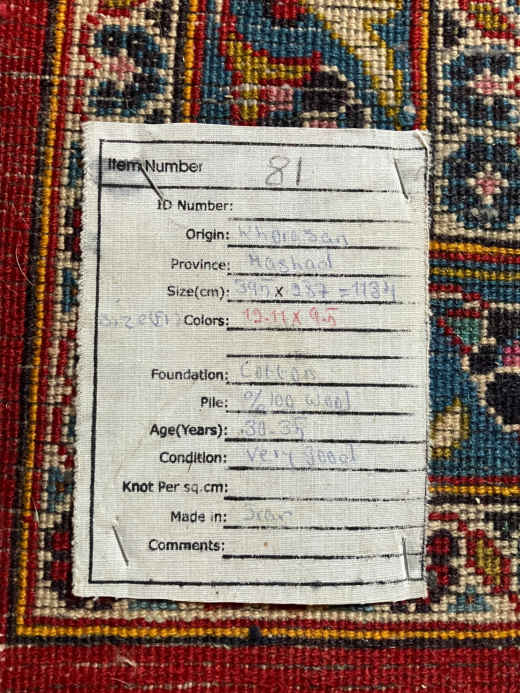 Item Number 81
ID Number:
Origin: Khorasan
Province: Mashad
Size(cm): 395 x 287 = 1134
Size(Ft) Colors: 12.11 x 9.5
Foundation: Cotton
Pile: % 100 Wool
Age(Years): 30-35
Condition: Very good
Knot Per sq.cm:
Made in: Iran
Comments: